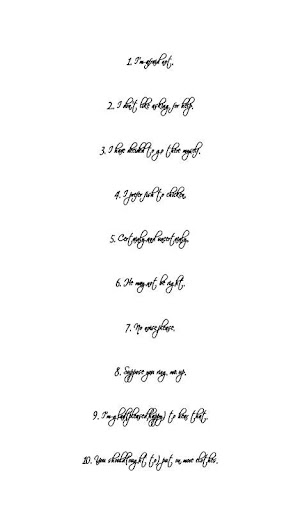 1. I'm afraid not.
2. I don't like asking for help.
3. I have decided to go there myself.
4. I prefer fish to chicken.
5. Certainly and uncertainly.
6. He may not be right.
7. No noise,please.
8. Suppose you ring me up.
9. I'm glad(pleased,happy) to hear that.
10. You should(ought to) put on more clothes.